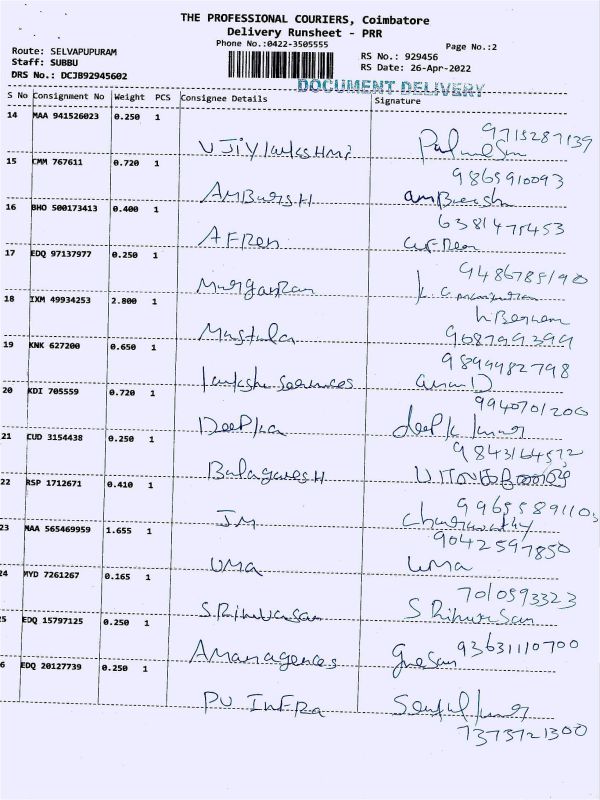 THE PROFESSIONAL COURIERS, Coimbatore
Delivery Runsheet - PRR
Phone No.:0422-3505555
Page No.:2
Route: SELVAPUPURAM
Staff: SUBBU
DRS No.: DCJB92945602
RS No.: 929456
RS Date: 26-Apr-2022
DOCUMENT DELIVERY
S No Consignment No Weight PCS Consignee Details Signature
14 MAA 941526023 0.250 1
9715287139
15 CMM 767611 0.720 1
9865910093
AMBURSH
16 BHO 500173413 0.400 1
6381475453
AFREN
17 EDQ 97137977 0.250 1
Murganran
18 IXM 49934253 2.800 1
Mustafa
19 KNK 627200 0.650 1
9899982798
20 KDI 705559 0.720 1
9940701206
DEEPKA deepk kumar
21 CUD 3154438 0.250 1
BalagaresH
22 RSP 1712671 0.410 1
JM
23 MAA 565469959 1.655 1
9042597850
UMA UMA
24 MYD 7261267 0.165 1
7010593323
25 EDQ 15797125 0.250 1
93631110700
Amanagences
26 EDQ 20127739 0.250 1
PV InFRa
7373721300